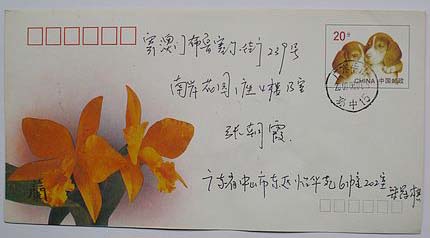 20分
CHINA 中国邮政
寄澳门布鲁塞尔街239号
南岸花园1座4楼B室
张朝霞
广东省中山市东区怡华苑6幢202室